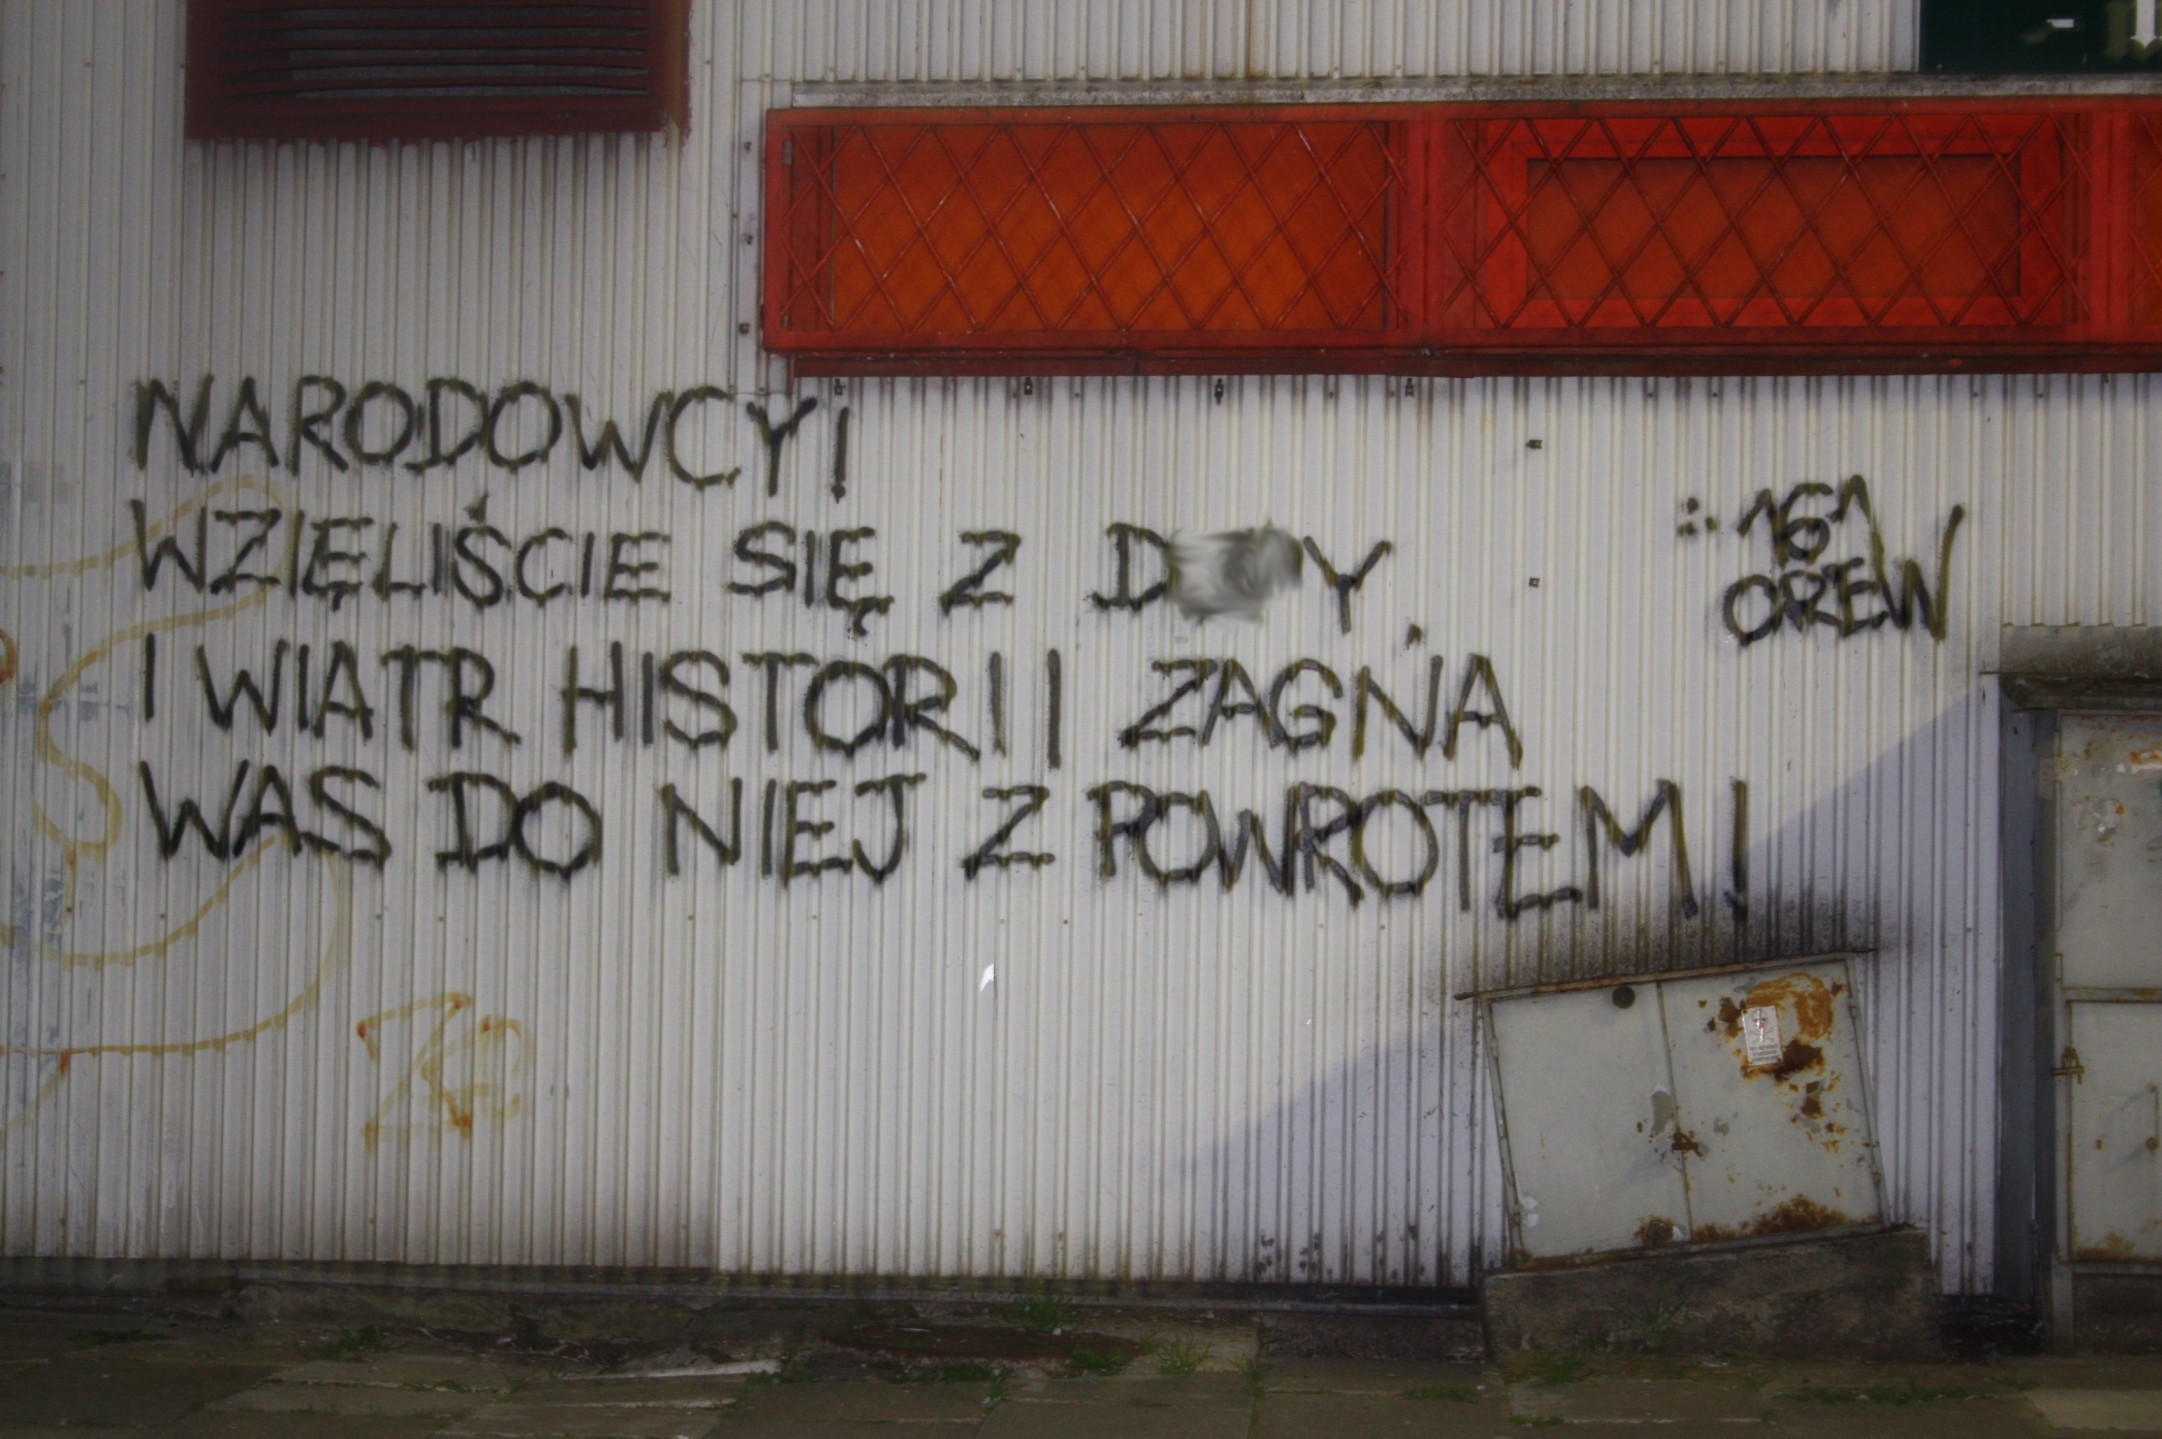 NARODOWCY!
WZIĘLIŚCIE SIĘ Z
I WIATR HISTORII ZAGNA
WAS DO NIEJ Z POWROTEM!
161
CREW